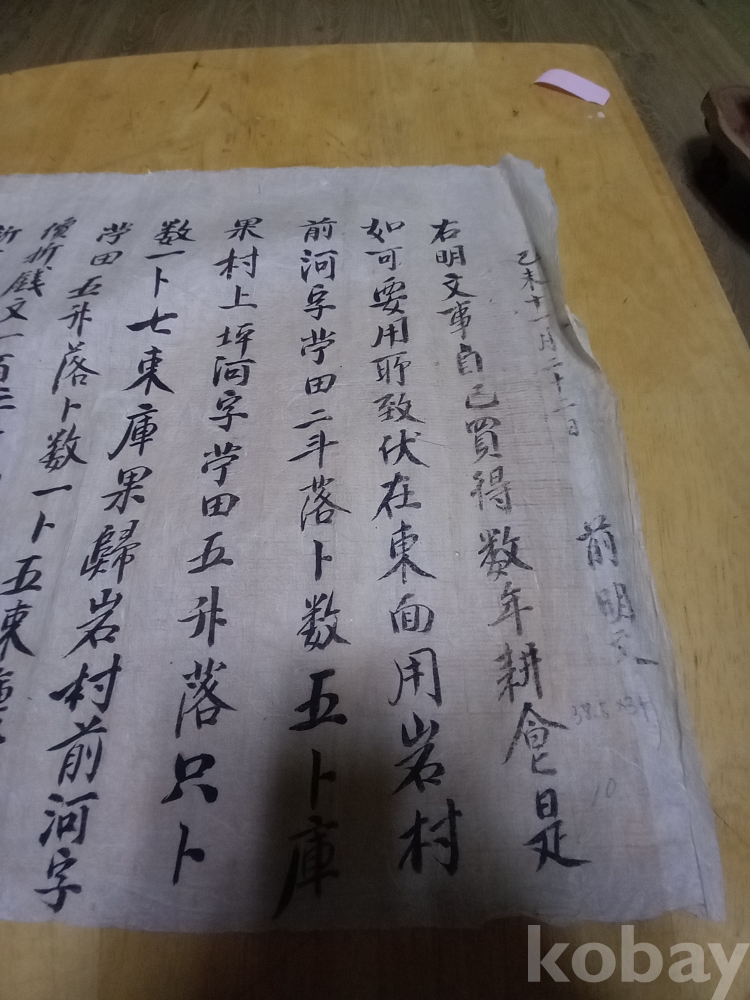 己未十一月二十一日
前明文
38.5
10
右明文事自己買得数年耕食是
如可要用所致伏在東面用岩村
前河字畓田二斗落卜数五卜庫
果村上坪河字畓田五升落只卜
数一卜七束庫果歸岩村前河字
畓田五升落卜数一卜五束
價折錢文一百
kobay